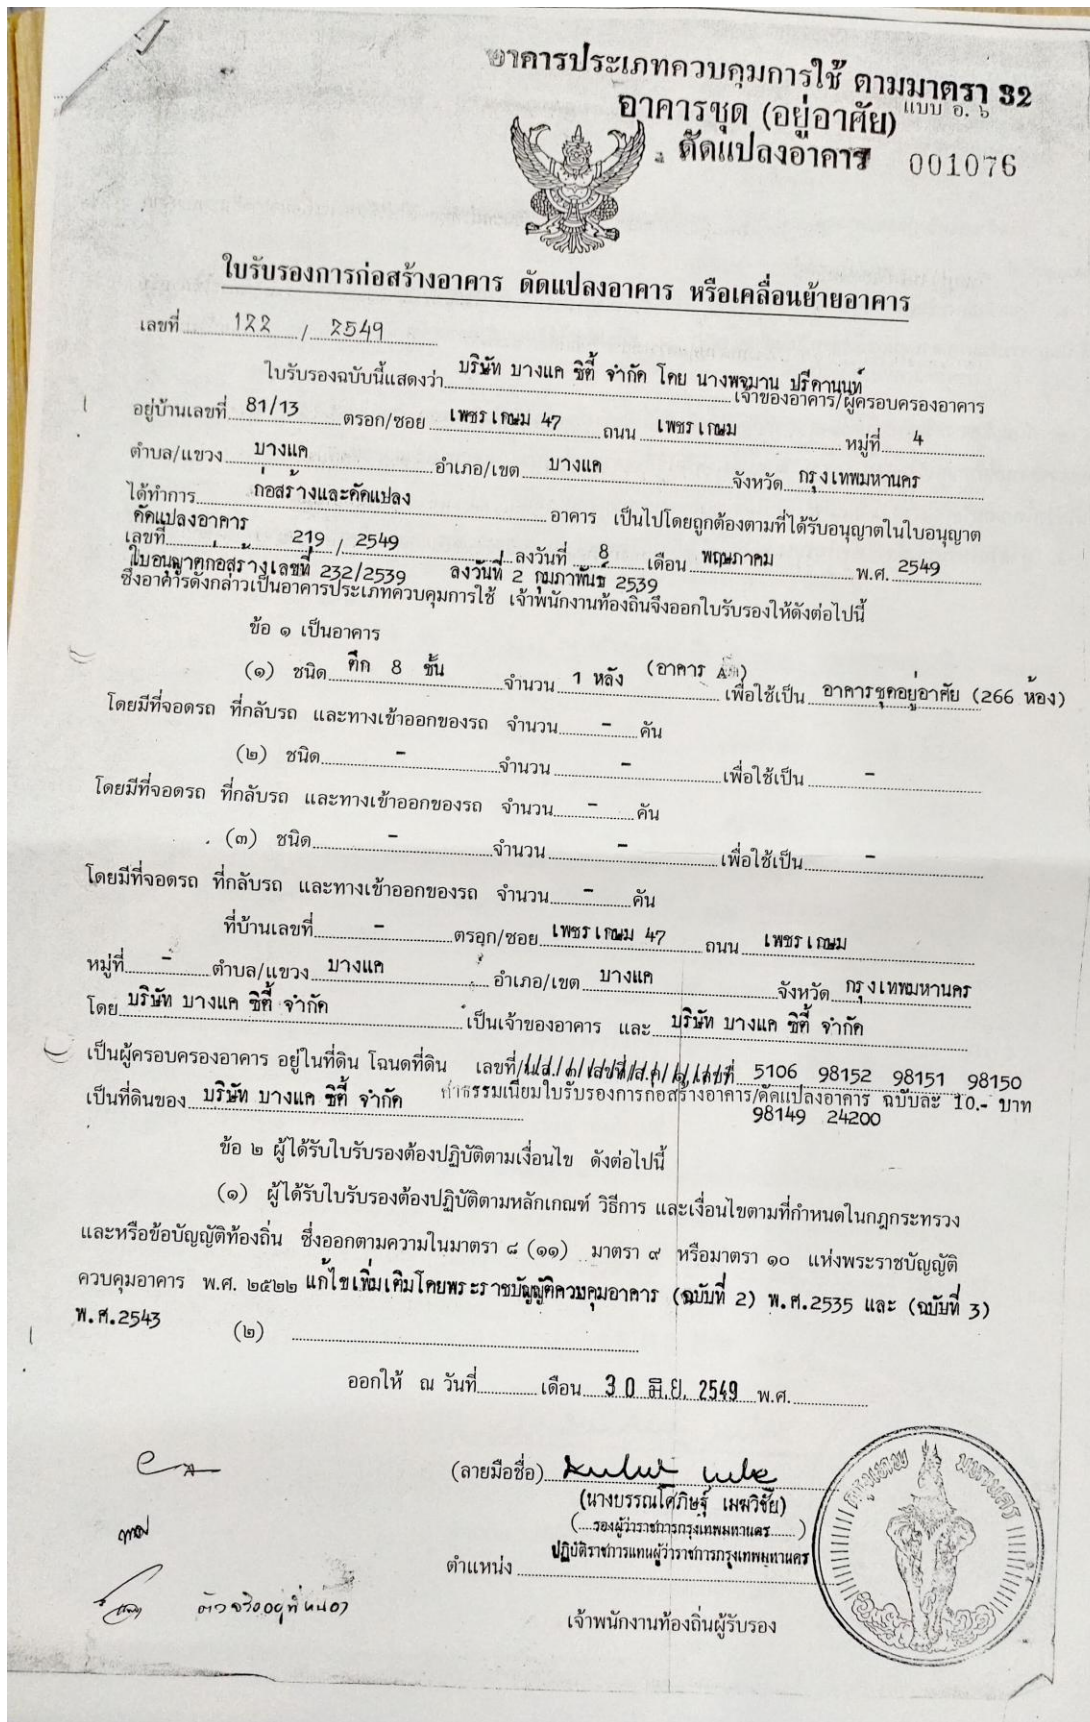 อาคารประเภทควบคุมการใช้ ตามมาตรา 32
อาคารชุด (อยู่อาศัย) แบบ อ. ๖
ดัดแปลงอาคาร 001076
ใบรับรองการก่อสร้างอาคาร ดัดแปลงอาคาร หรือเคลื่อนย้ายอาคาร
เลขที่ 122 / 2549
ใบรับรองฉบับนี้แสดงว่า บริษัท บางแค ซิตี้ จำกัด โดย นางพจมาน ปรีดานนท์ เจ้าของอาคาร/ผู้ครอบครองอาคาร
อยู่บ้านเลขที่ 81/13 ตรอก/ซอย เพชรเกษม 47 ถนน เพชรเกษม หมู่ที่ 4
ตำบล/แขวง บางแค อำเภอ/เขต บางแค จังหวัด กรุงเทพมหานคร
ได้ทำการ ก่อสร้างและดัดแปลง อาคาร เป็นไปโดยถูกต้องตามที่ได้รับอนุญาตในใบอนุญาต
ดัดแปลงอาคาร
เลขที่ 219 / 2549 ลงวันที่ 8 เดือน พฤษภาคม พ.ศ. 2549
ใบอนุญาตก่อสร้างเลขที่ 232/2539 ลงวันที่ 2 กุมภาพันธ์ 2539
ซึ่งอาคารดังกล่าวเป็นอาคารประเภทควบคุมการใช้ เจ้าพนักงานท้องถิ่นจึงออกใบรับรองให้ดังต่อไปนี้
ข้อ ๑ เป็นอาคาร
(๑) ชนิด ตึก 8 ชั้น จำนวน 1 หลัง (อาคาร เพื่อใช้เป็น อาคารชุดอยู่อาศัย (266 ห้อง)
โดยมีที่จอดรถ ที่กลับรถ และทางเข้าออกของรถ จำนวน - คัน
(๒) ชนิด - จำนวน - เพื่อใช้เป็น -
โดยมีที่จอดรถ ที่กลับรถ และทางเข้าออกของรถ จำนวน - คัน
(๓) ชนิด - จำนวน - เพื่อใช้เป็น -
โดยมีที่จอดรถ ที่กลับรถ และทางเข้าออกของรถ จำนวน - คัน
ที่บ้านเลขที่ - ตรอก/ซอย เพชรเกษม 47 ถนน เพชรเกษม
หมู่ที่ - ตำบล/แขวง บางแค อำเภอ/เขต บางแค จังหวัด กรุงเทพมหานคร
โดย บริษัท บางแค ซิตี้ จำกัด เป็นเจ้าของอาคาร และ บริษัท บางแค ซิตี้ จำกัด
เป็นผู้ครอบครองอาคาร อยู่ในที่ดิน โฉนดที่ดิน เลขที่ 5106 98152 98151 98150
เป็นที่ดินของ บริษัท บางแค ซิตี้ จำกัด ค่าธรรมเนียมใบรับรองการก่อสร้างอาคาร/ดัดแปลงอาคาร ฉบับละ 10.- บาท
98149 24200
ข้อ ๒ ผู้ได้รับใบรับรองต้องปฏิบัติตามเงื่อนไข ดังต่อไปนี้
(๑) ผู้ได้รับใบรับรองต้องปฏิบัติตามหลักเกณฑ์ วิธีการ และเงื่อนไขตามที่กำหนดในกฎกระทรวง
และหรือข้อบัญญัติท้องถิ่น ซึ่งออกตามความในมาตรา ๘ (๑๑) มาตรา ๙ หรือมาตรา ๑๐ แห่งพระราชบัญญัติ
ควบคุมอาคาร พ.ศ. ๒๕๒๒ แก้ไขเพิ่มเติมโดยพระราชบัญญัติควบคุมอาคาร (ฉบับที่ 2) พ.ศ.2535 และ (ฉบับที่ 3)
พ.ศ.2543
(๒)
ออกให้ ณ วันที่ เดือน 30 มิ.ย. 2549 พ.ศ.
(ลายมือชื่อ)
(นางบรรณโศภิษฐ์ เมฆวิชัย)
(รองผู้ว่าราชการกรุงเทพมหานคร)
ปฏิบัติราชการแทนผู้ว่าราชการกรุงเทพมหานคร
ตำแหน่ง
เจ้าพนักงานท้องถิ่นผู้รับรอง
กรุงเทพ มหานคร